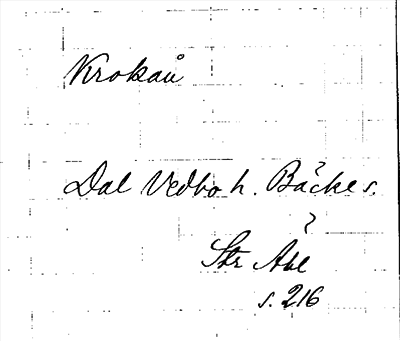 Krokån
Dal Vedbo h. Bäcke s.
?
Str Åbl
s. 216